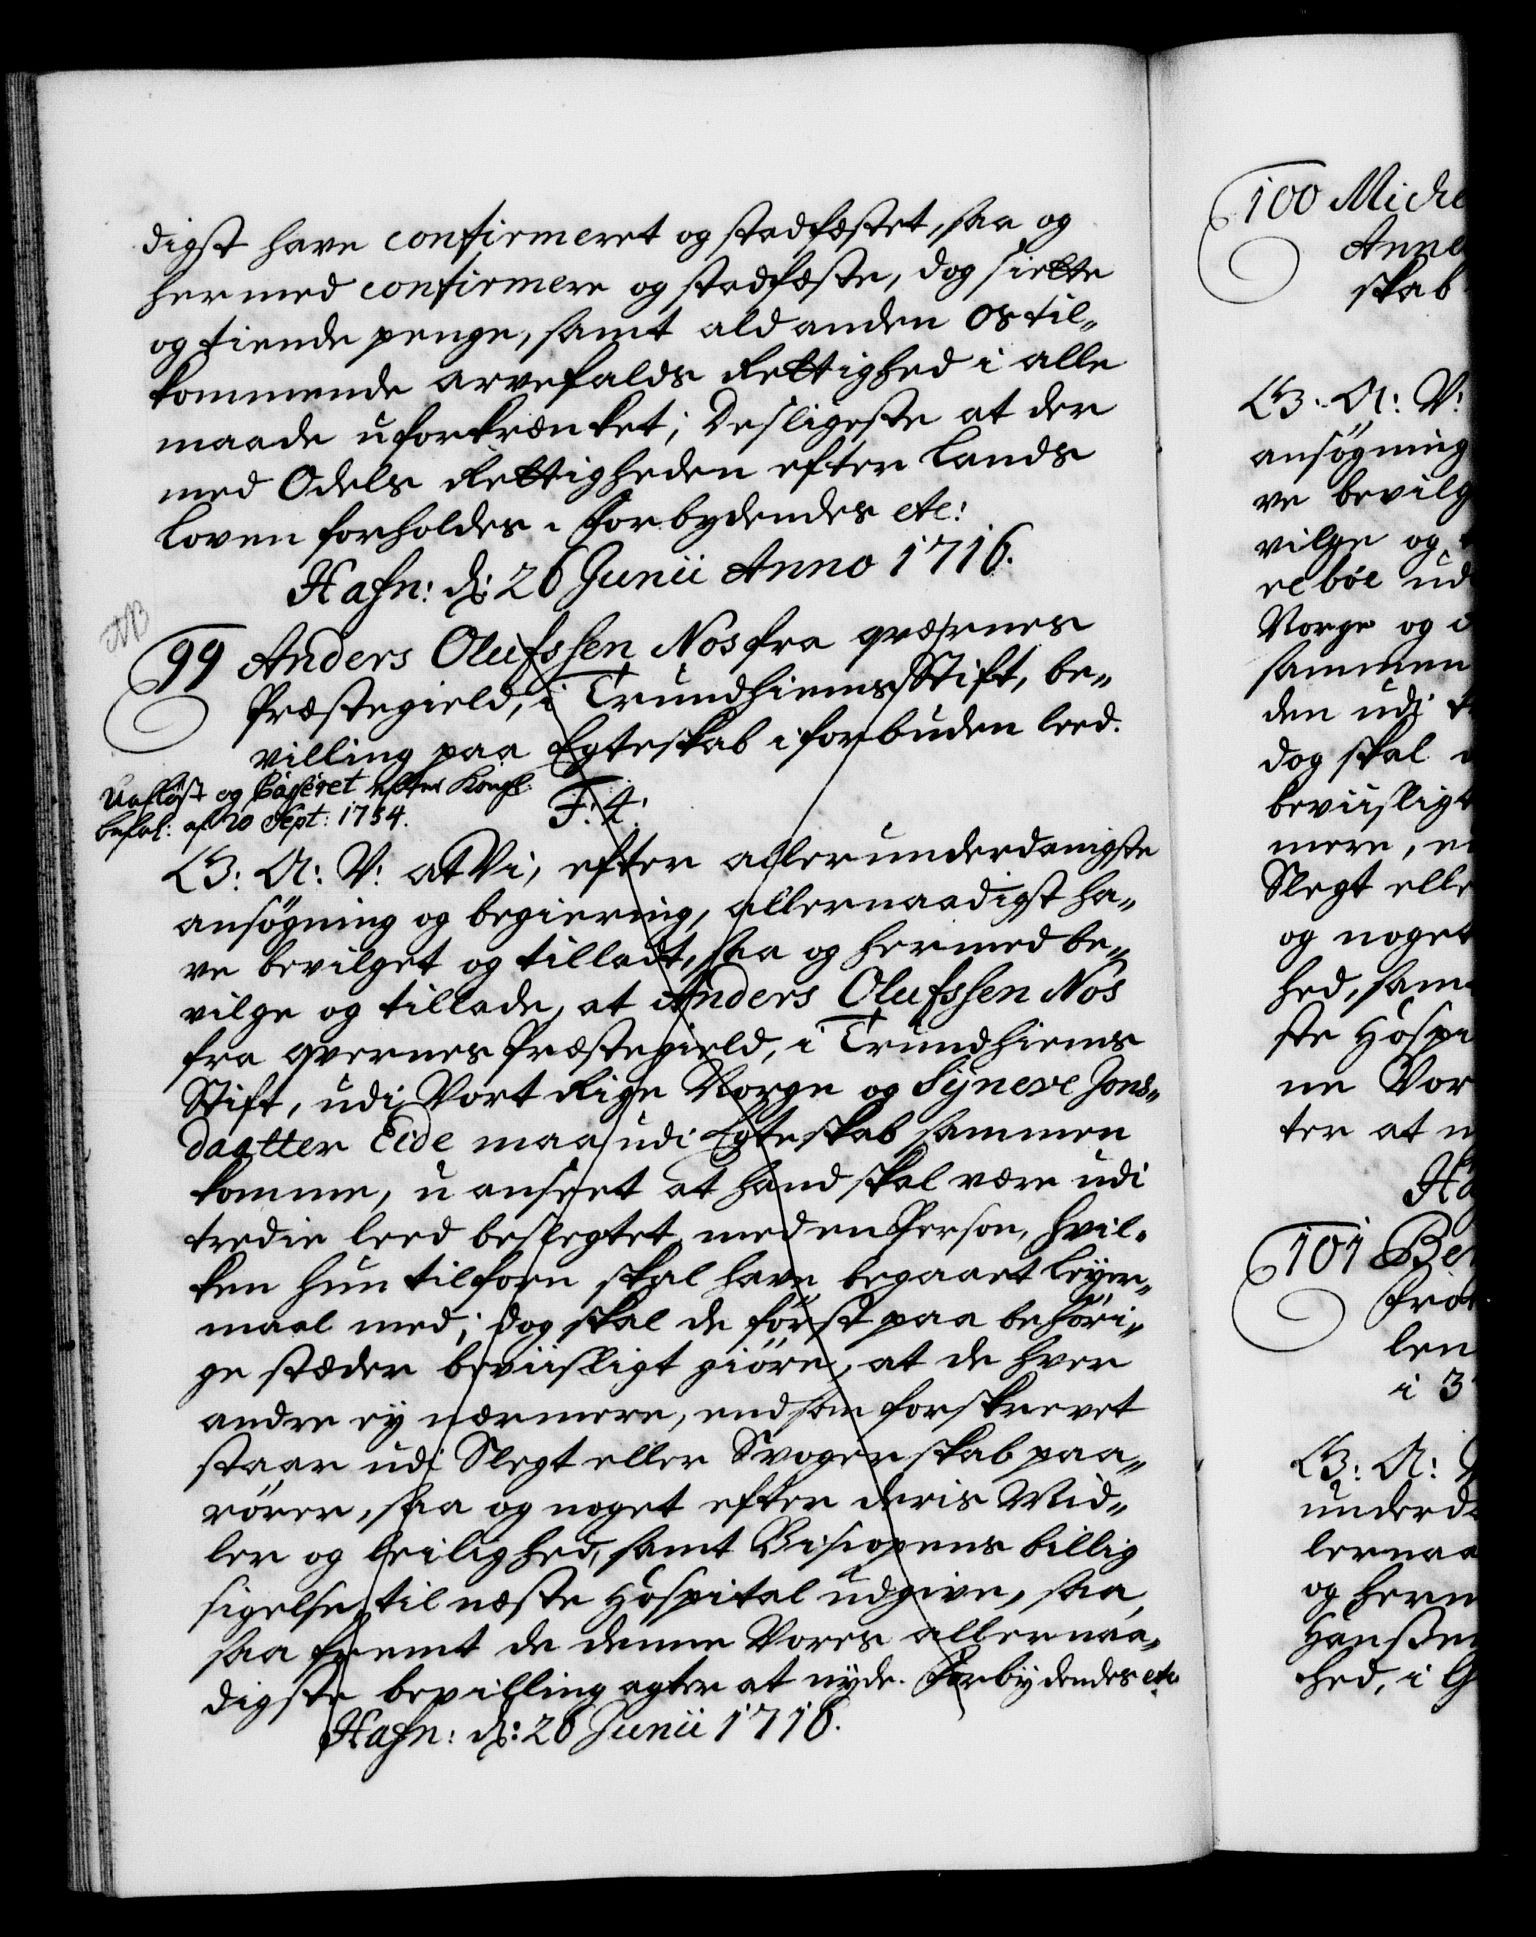 digst have confirmeret og stadfæstet, saa og
hermed confirmere og stadfæste, dog siette
og tiende penge, samt ald anden Os til„
kommende arvefalds Rettighed i alle
maade uforkrænket; Desligeste at der
med Odels Rettigheden efter Lands
Loven forholdes. Forbydendes etc:
Hafn: d: 26 Junii Anno 1716.
NB
99 Anders Olufssen Nos fra qværnes
Præstegield, i Trundhiems Stift, be„
villing paa Egteskab i forbuden leed.
Uafløst og Casseret efter Kongl:
befal: af 20 Sept: 1754.
F: 4:
G: A: V: at Vi, efter allerunderdanigste
ansøgning og begiering, allernaadigst ha„
ve bevilget og tilladt, saa og hermed be„
vilge og tillade, at Anders Olufssen Nos
fra qvernes Præstegield, i Trundhiems
Stift, udi Vort Rige Norge og Syneve Jons„
daatter Eide maa udi Egteskab sammen
komme, uanseet at hand skal være udi
tredie leed beslegtet med en Person, hvil„
ken hun tilforn skal have begaaet Leyer„
maal med; dog skal de først paa behøri„
ge stæder beviisligt giøre, at de hver
andre ey nærmere, end som forskrevet
staar udi Slegt eller Svogerskab paa„
rører, saa og noget efter deris Mid„
ler og leilighed, samt Bisiopens billig
sigelse til næste Hospital udgive, saa
saa fremt de denne Vores allernaa„
digste bevilling agter at nyde. Forbydendes etc
Hafn: d: 26 Junii 1716.
100 Miche
Anne
skab
G: A: V:
ansøgning
ve bevilg
vilge og
reboe ud
Norge og
sammen
den udi
dog skal
beviisligt
mere, en
Slegt elle
og noget
hed, sam
ste Hospi
ne Vor
ter at n
Ha
101 Be
len
i 3
G: A:
underd
lernaa
og herm
Hanssen
hed, i